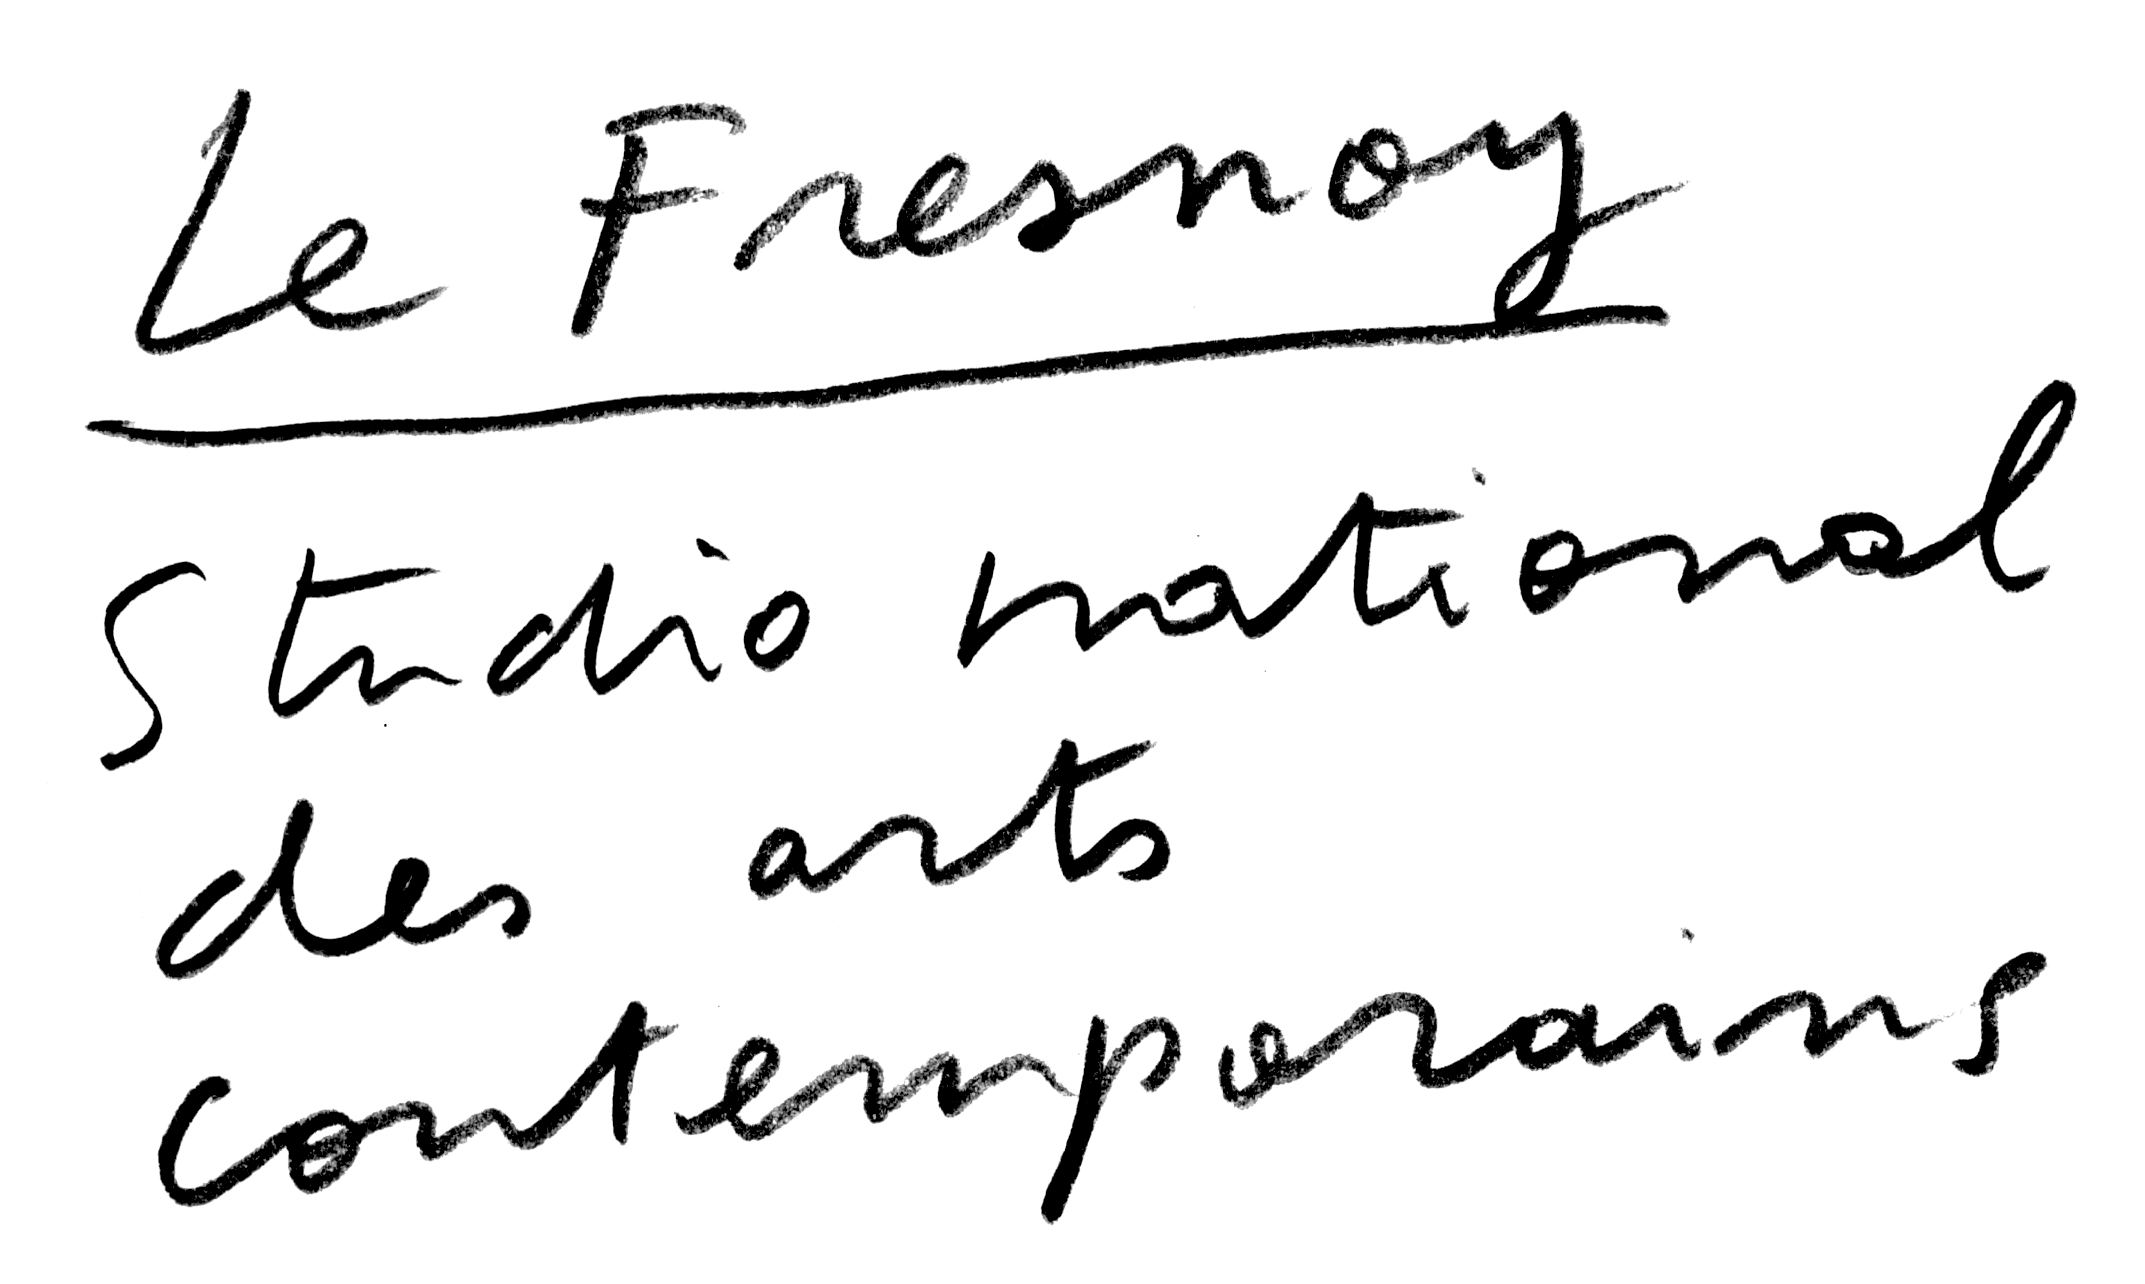 Le Fresnoy
Studio national
des arts
contemporains